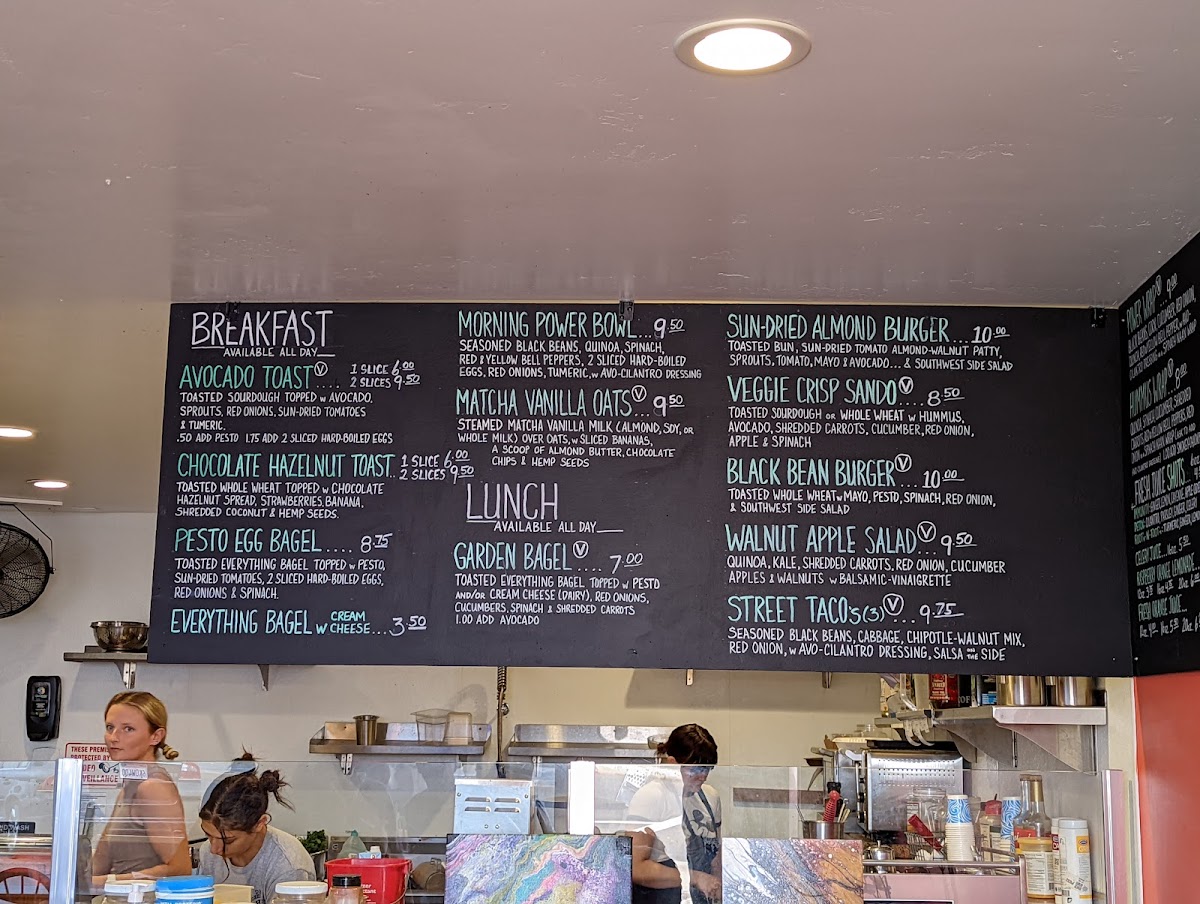 BREAKFAST
AVAILABLE ALL DAY
AVOCADO TOAST Ⓥ.... 1 SLICE 6.00
2 SLICES 9.50
TOASTED SOURDOUGH TOPPED w AVOCADO,
SPROUTS, RED ONIONS, SUN-DRIED TOMATOES
& TUMERIC.
.50 ADD PESTO 1.75 ADD 2 SLICED HARD-BOILED EGGS
CHOCOLATE HAZELNUT TOAST.. 1 SLICE 6.00
2 SLICES 9.50
TOASTED WHOLE WHEAT TOPPED w CHOCOLATE
HAZELNUT SPREAD, STRAWBERRIES, BANANA,
SHREDDED COCONUT & HEMP SEEDS.
PESTO EGG BAGEL.... 8.75
TOASTED EVERYTHING BAGEL TOPPED w PESTO,
SUN-DRIED TOMATOES, 2 SLICED HARD-BOILED EGGS,
RED ONIONS & SPINACH.
EVERYTHING BAGEL w CREAM CHEESE...3.50
MORNING POWER BOWL...9.50
SEASONED BLACK BEANS, QUINOA, SPINACH,
RED & YELLOW BELL PEPPERS, 2 SLICED HARD-BOILED
EGGS, RED ONIONS, TUMERIC, w AVO-CILANTRO DRESSING
MATCHA VANILLA OATS Ⓥ...9.50
STEAMED MATCHA VANILLA MILK (ALMOND, SOY, OR
WHOLE MILK) OVER OATS, w SLICED BANANAS,
A SCOOP OF ALMOND BUTTER, CHOCOLATE
CHIPS & HEMP SEEDS
LUNCH
AVAILABLE ALL DAY
GARDEN BAGEL Ⓥ.... 7.00
TOASTED EVERYTHING BAGEL TOPPED w PESTO
AND/OR CREAM CHEESE (DAIRY), RED ONIONS,
CUCUMBERS, SPINACH & SHREDDED CARROTS
1.00 ADD AVOCADO
SUN-DRIED ALMOND BURGER...10.00
TOASTED BUN, SUN-DRIED TOMATO ALMOND-WALNUT PATTY,
SPROUTS, TOMATO, MAYO & AVOCADO... & SOUTHWEST SIDE SALAD
VEGGIE CRISP SANDO Ⓥ.... 8.50
TOASTED SOURDOUGH OR WHOLE WHEAT w HUMMUS,
AVOCADO, SHREDDED CARROTS, CUCUMBER, RED ONION,
APPLE & SPINACH
BLACK BEAN BURGER Ⓥ.. 10.00
TOASTED WHOLE WHEAT w MAYO, PESTO, SPINACH, RED ONION,
& SOUTHWEST SIDE SALAD
WALNUT APPLE SALAD Ⓥ..9.50
QUINOA, KALE, SHREDDED CARROTS, RED ONION, CUCUMBER
APPLES & WALNUTS w BALSAMIC-VINAIGRETTE
STREET TACO'S (3) Ⓥ... 9.75
SEASONED BLACK BEANS, CABBAGE, CHIPOTLE-WALNUT MIX,
RED ONION, w AVO-CILANTRO DRESSING, SALSA ON THE SIDE
POWER WRAP Ⓥ...9.00
HUMMUS WRAP Ⓥ 8.00
FRESH JUICE SHOTS
CELERY JUICE
RASPBERRY ORANGE LEMONADE
FRESH ORANGE JUICE
THESE PREMI
PROTECTED BY